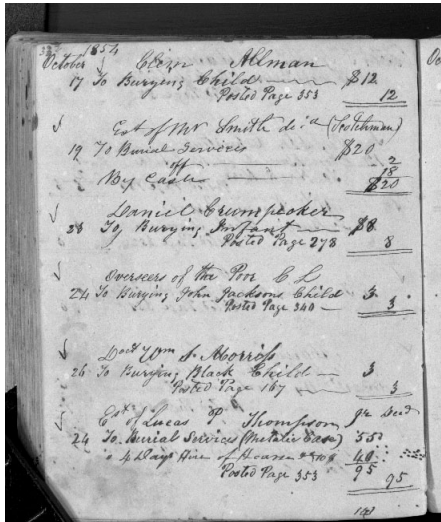 1854
October
Allman
17 To Burying Child $12
Posted Page 353 12
Est of Mr Smith dec'd (Scotchman)
19 To Burial Services $20
off 2
By Cash 18
$20
Daniel Crumpecker
23 To Burying Infant $8
Posted Page 278 8
Overseers of the Poor C L
24 To Burying John Jacksons Child 3
Posted Page 340 3
Doct Wm S. Morriss
26 To Burying Black Child 3
Posted Page 167 3
Est of Lucas P. Thompson
24 To Burial Services (Metalic Case) 55
4 Days Hire of Hearse 40
Posted Page 353 95
95